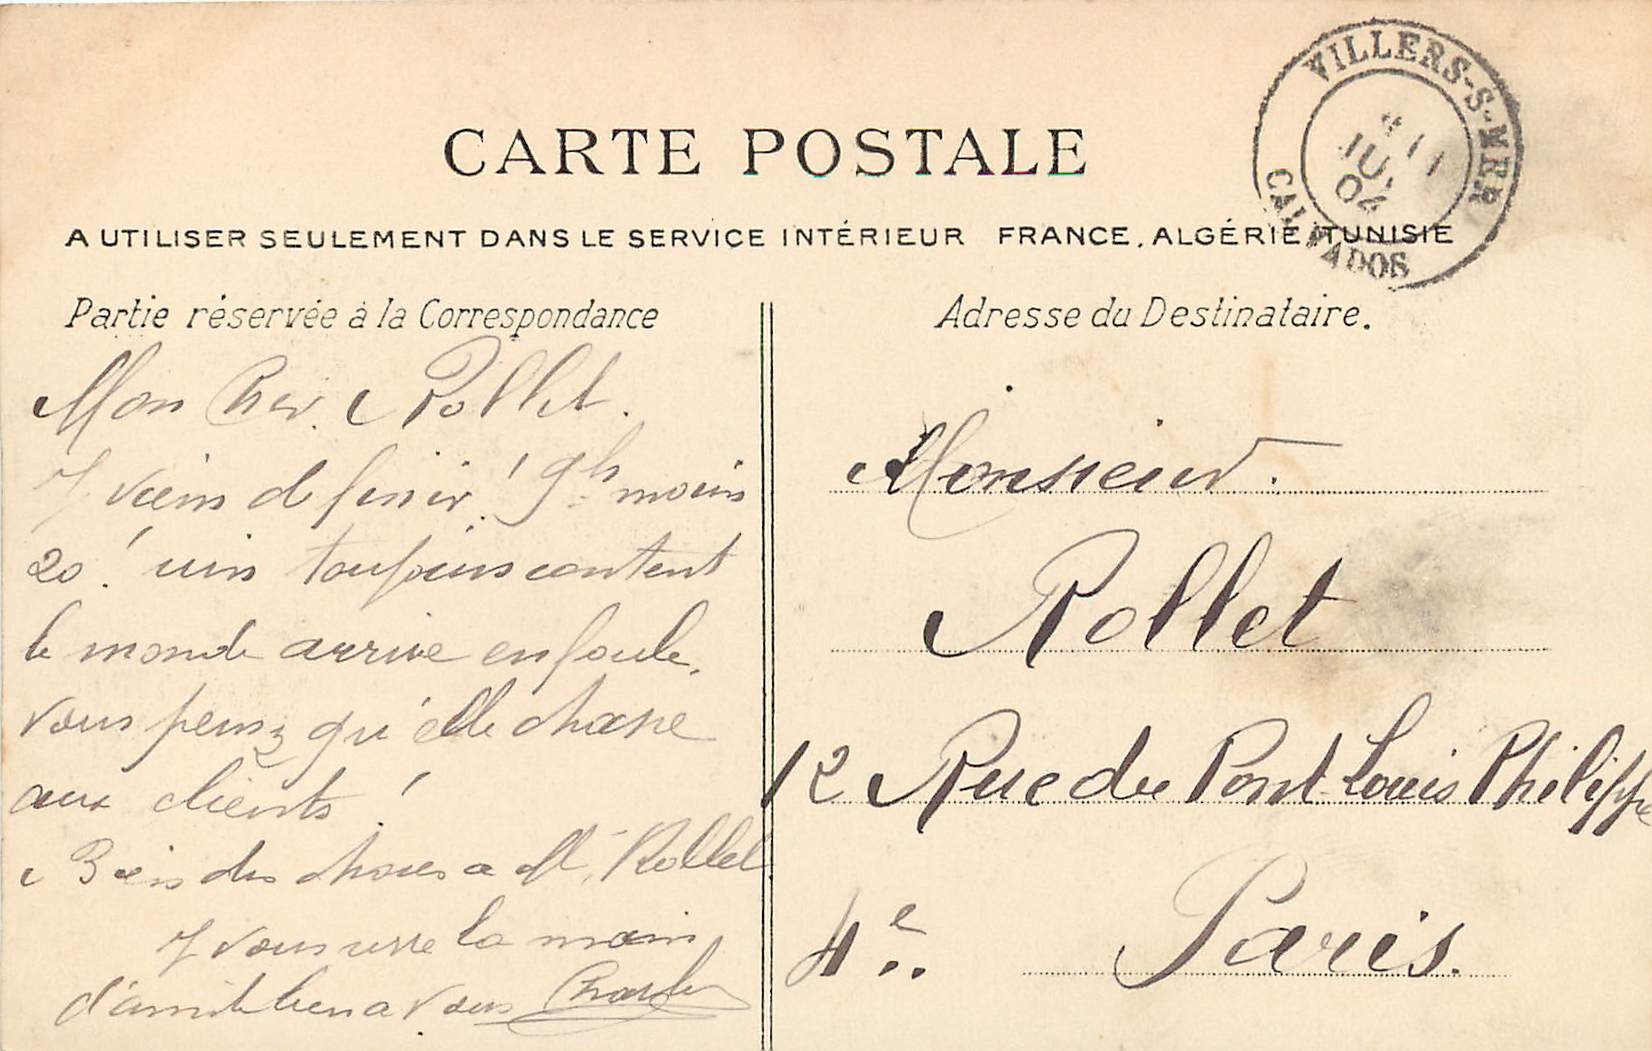 CARTE POSTALE
A UTILISER SEULEMENT DANS LE SERVICE INTÉRIEUR FRANCE, ALGÉRIE, TUNISIE
VILLERS-S-MER
11
04
CALVADOS
Partie réservée à la Correspondance
Mon Cher Rollet.
J viens d finir! 9h moins
20! toujours content
le monde arrive en foule,
vous pensez qu'elle chasse
aux clients!
Bien des choses a Me Rollet
J vous serre la main
d'amitié bien a vous Charles
Adresse du Destinataire.
Monsieur.
Rollet
12 Rue du Pont Louis Philippe
4e Paris.